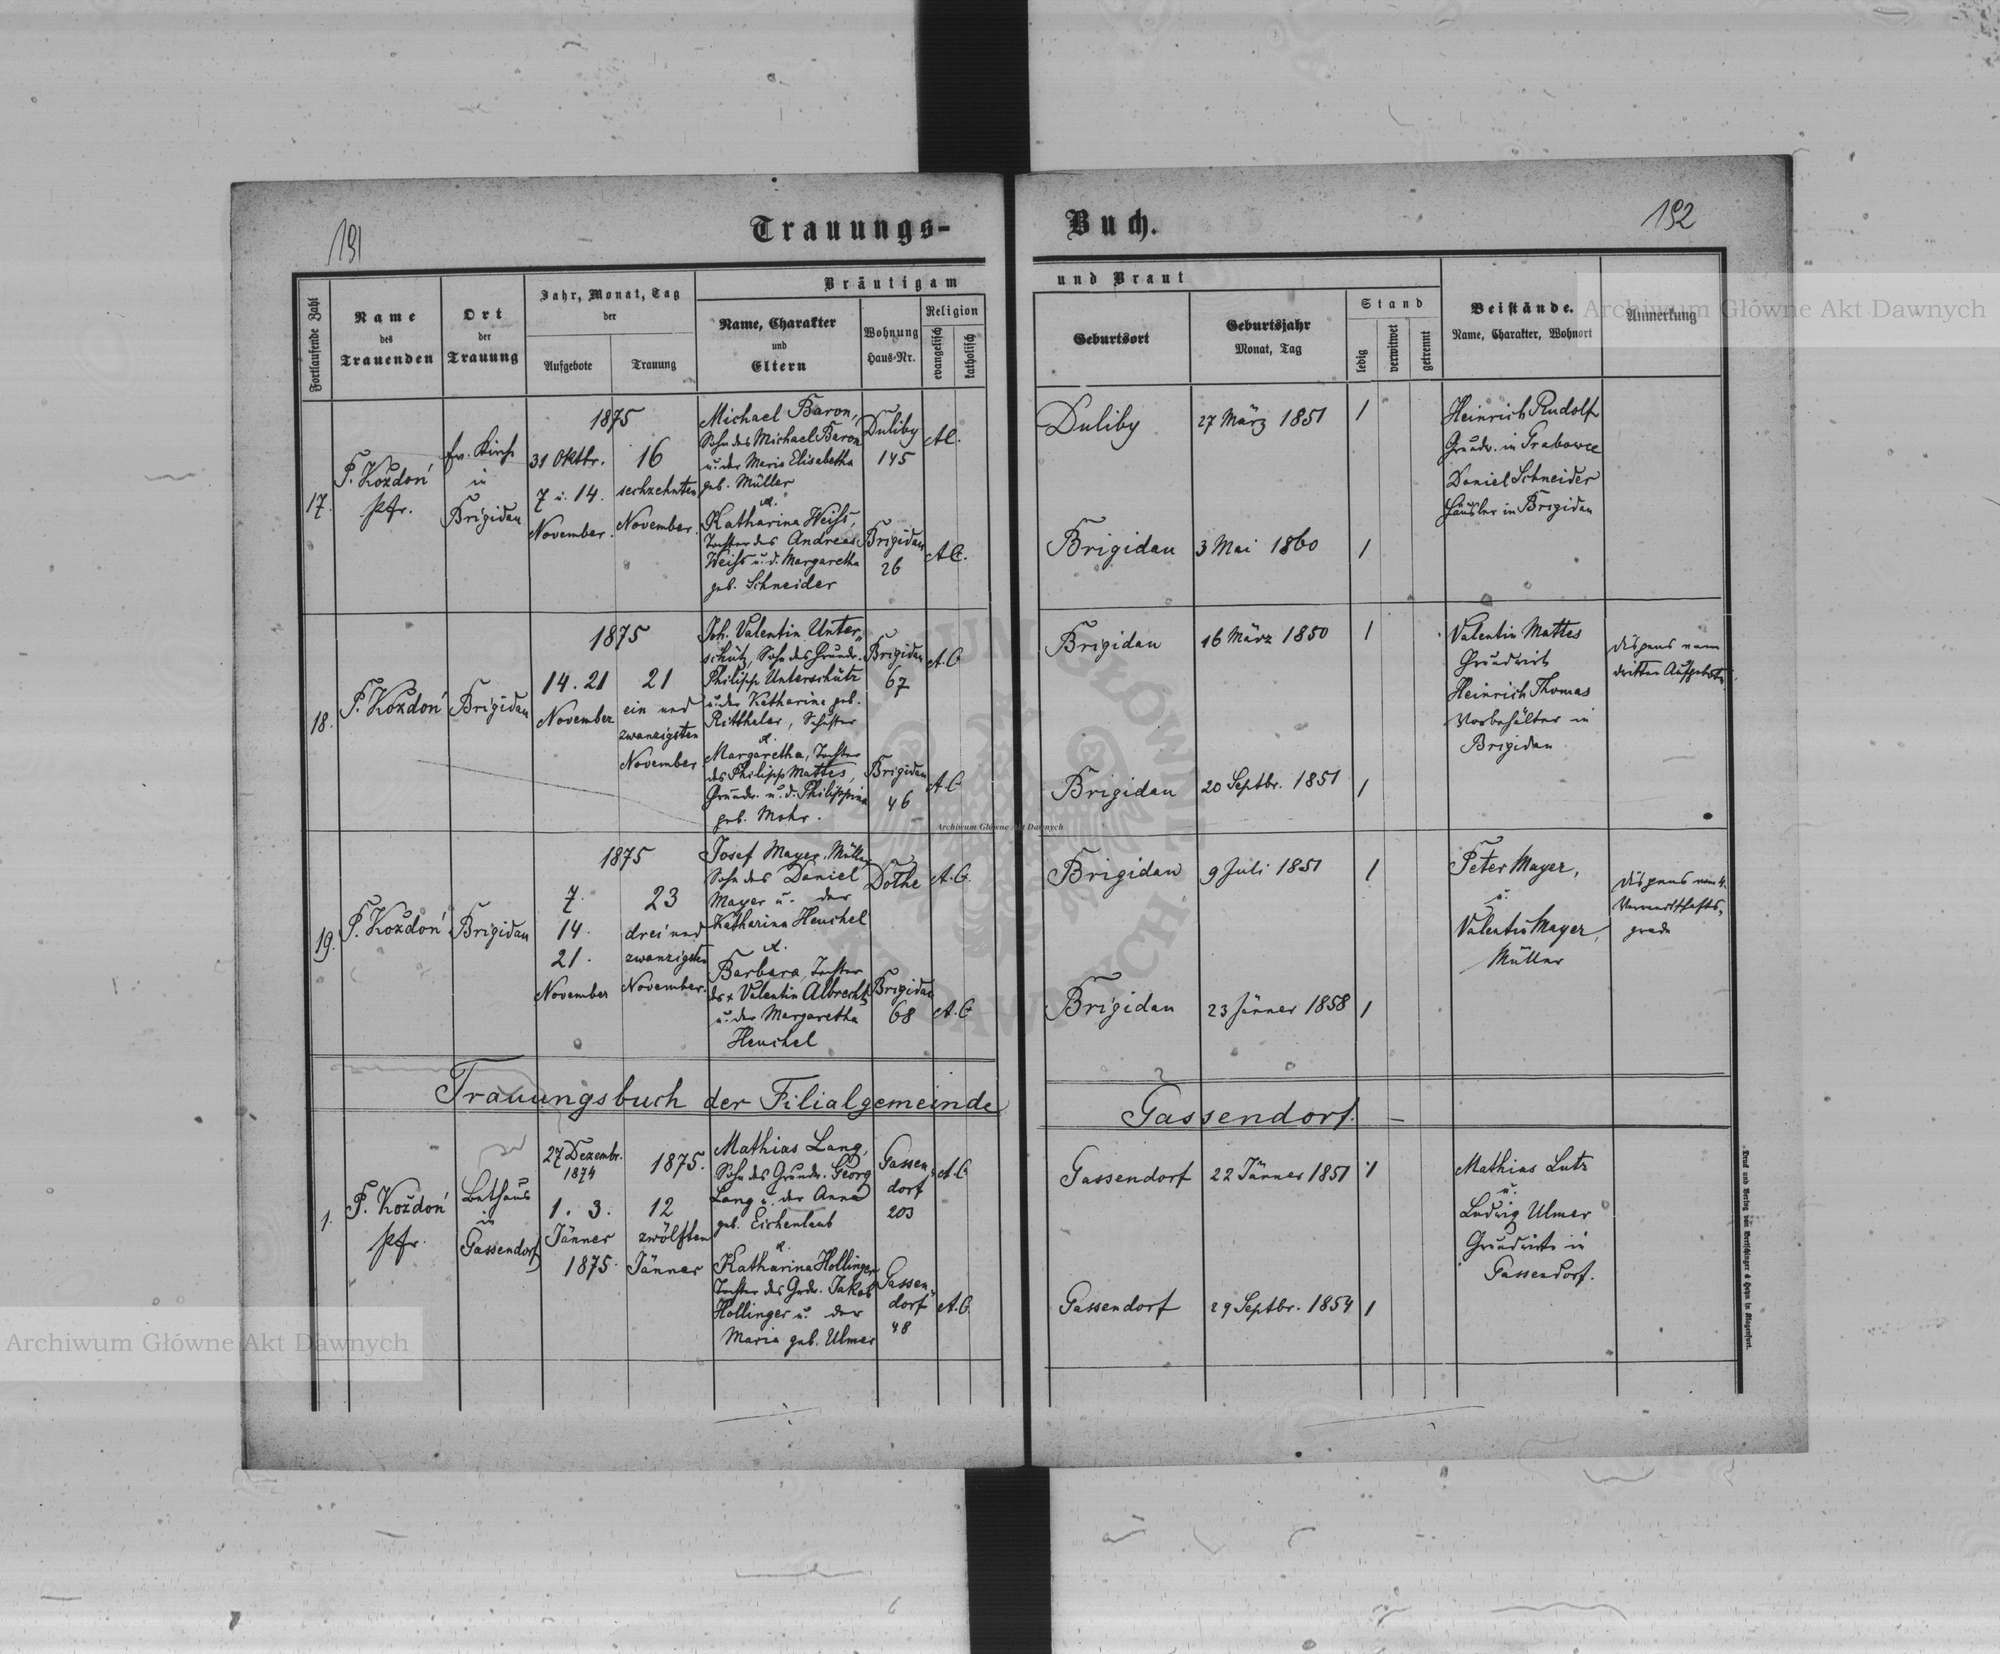 191
Trauungs-
Buch.
192
Fortlaufende Zahl
Name
des
Trauenden
Ort
der
Trauung
Jahr, Monat, Tag
der
Aufgebote
Trauung
Bräutigam
Name, Charakter
und
Eltern
Wohnung
Haus-Nr.
Religion
evangelisch
katholisch
und Braut
Geburtsort
Geburtsjahr
Monat, Tag
Stand
ledig
verwitwet
getrennt
Beistände.
Name, Charakter, Wohnort
Anmerkung
17.
P. Koždoń
Pfr.
ev. Kirche
in
Brigidau
1875
31 Oktbr.
7 u. 14.
November.
16
sechzehnten
November.
Michael Baron,
Sohn des Michael Baron
u. der Maria Elisabetha
geb. Müller
Duliby
145
A.C.
Katharina Weiss,
Tochter des Andreas
Weiss u. d. Margaretha
geb. Schneider
Brigidau
26
A.C.
Duliby
27 März 1851
1
Brigidau
3 Mai 1860
1
Heinrich Rudolf
Grundw. in Grabowce
Daniel Schneider
Häusler in Brigidau
18.
P. Koždoń
Brigidau
1875
14. 21
November
21
ein und
zwanzigsten
November
Joh. Valentin Unter-
schütz, Sohn des Grundw.
Philipp Unterschütz
u. der Katharina geb.
Ritthaler, Schuster
Brigidau
67
A.C.
Margaretha, Tochter
des Philipp Mattes,
Grundw. u. d. Philippina
geb. Mohr.
Brigidau
46
A.C.
Brigidau
16 März 1850
1
Brigidau
20 Septbr. 1851
1
Valentin Mattes
Grundwirt
Heinrich Thomas
Vorbehälter in
Brigidau
Dispens vom
dritten Aufgebote.
19.
P. Koždoń
Brigidau
1875
7.
14.
21.
November
23
drei und
zwanzigsten
November.
Josef Mayer, Müller
Sohn des Daniel
Mayer u. der
Katharina Henchel
A.C.
Barbara, Tochter
des + Valentin Albrecht
u. der Margaretha
Henchel
Brigidau
68
A.C.
Brigidau
9 Juli 1851
1
Brigidau
23 Jänner 1858
1
Peter Mayer,
u.
Valentin Mayer,
Müller
Dispens vom 4.
Verwandtschafts-
grade
Trauungsbuch der Filialgemeinde
Gassendorf. —
1.
P. Koždoń
Pfr.
Bethaus
in
Gassendorf
27 Dezembr.
1874
1. 3.
Jänner
1875.
1875.
12
zwölften
Jänner
Mathias Lang,
Sohn des Grundw. Georg
Lang u. der Anna
geb. Eichenlaub
Gassen-
dorf
203
A.C.
Katharina Hollinger
Tochter des Grdw. Jakob
Hollinger u. der
Maria geb. Ulmer
Gassen-
dorf
48
A.C.
Gassendorf
22 Jänner 1851
1
Gassendorf
29 Septbr. 1854
1
Mathias Lutz
u.
Ludwig Ulmer
Grundwirte in
Gassendorf.
Druck und Verlag von Bertschinger & Heyn in Klagenfurt.
Archiwum Główne Akt Dawnych
Archiwum Główne Akt Dawnych
Archiwum Główne Akt Dawnych